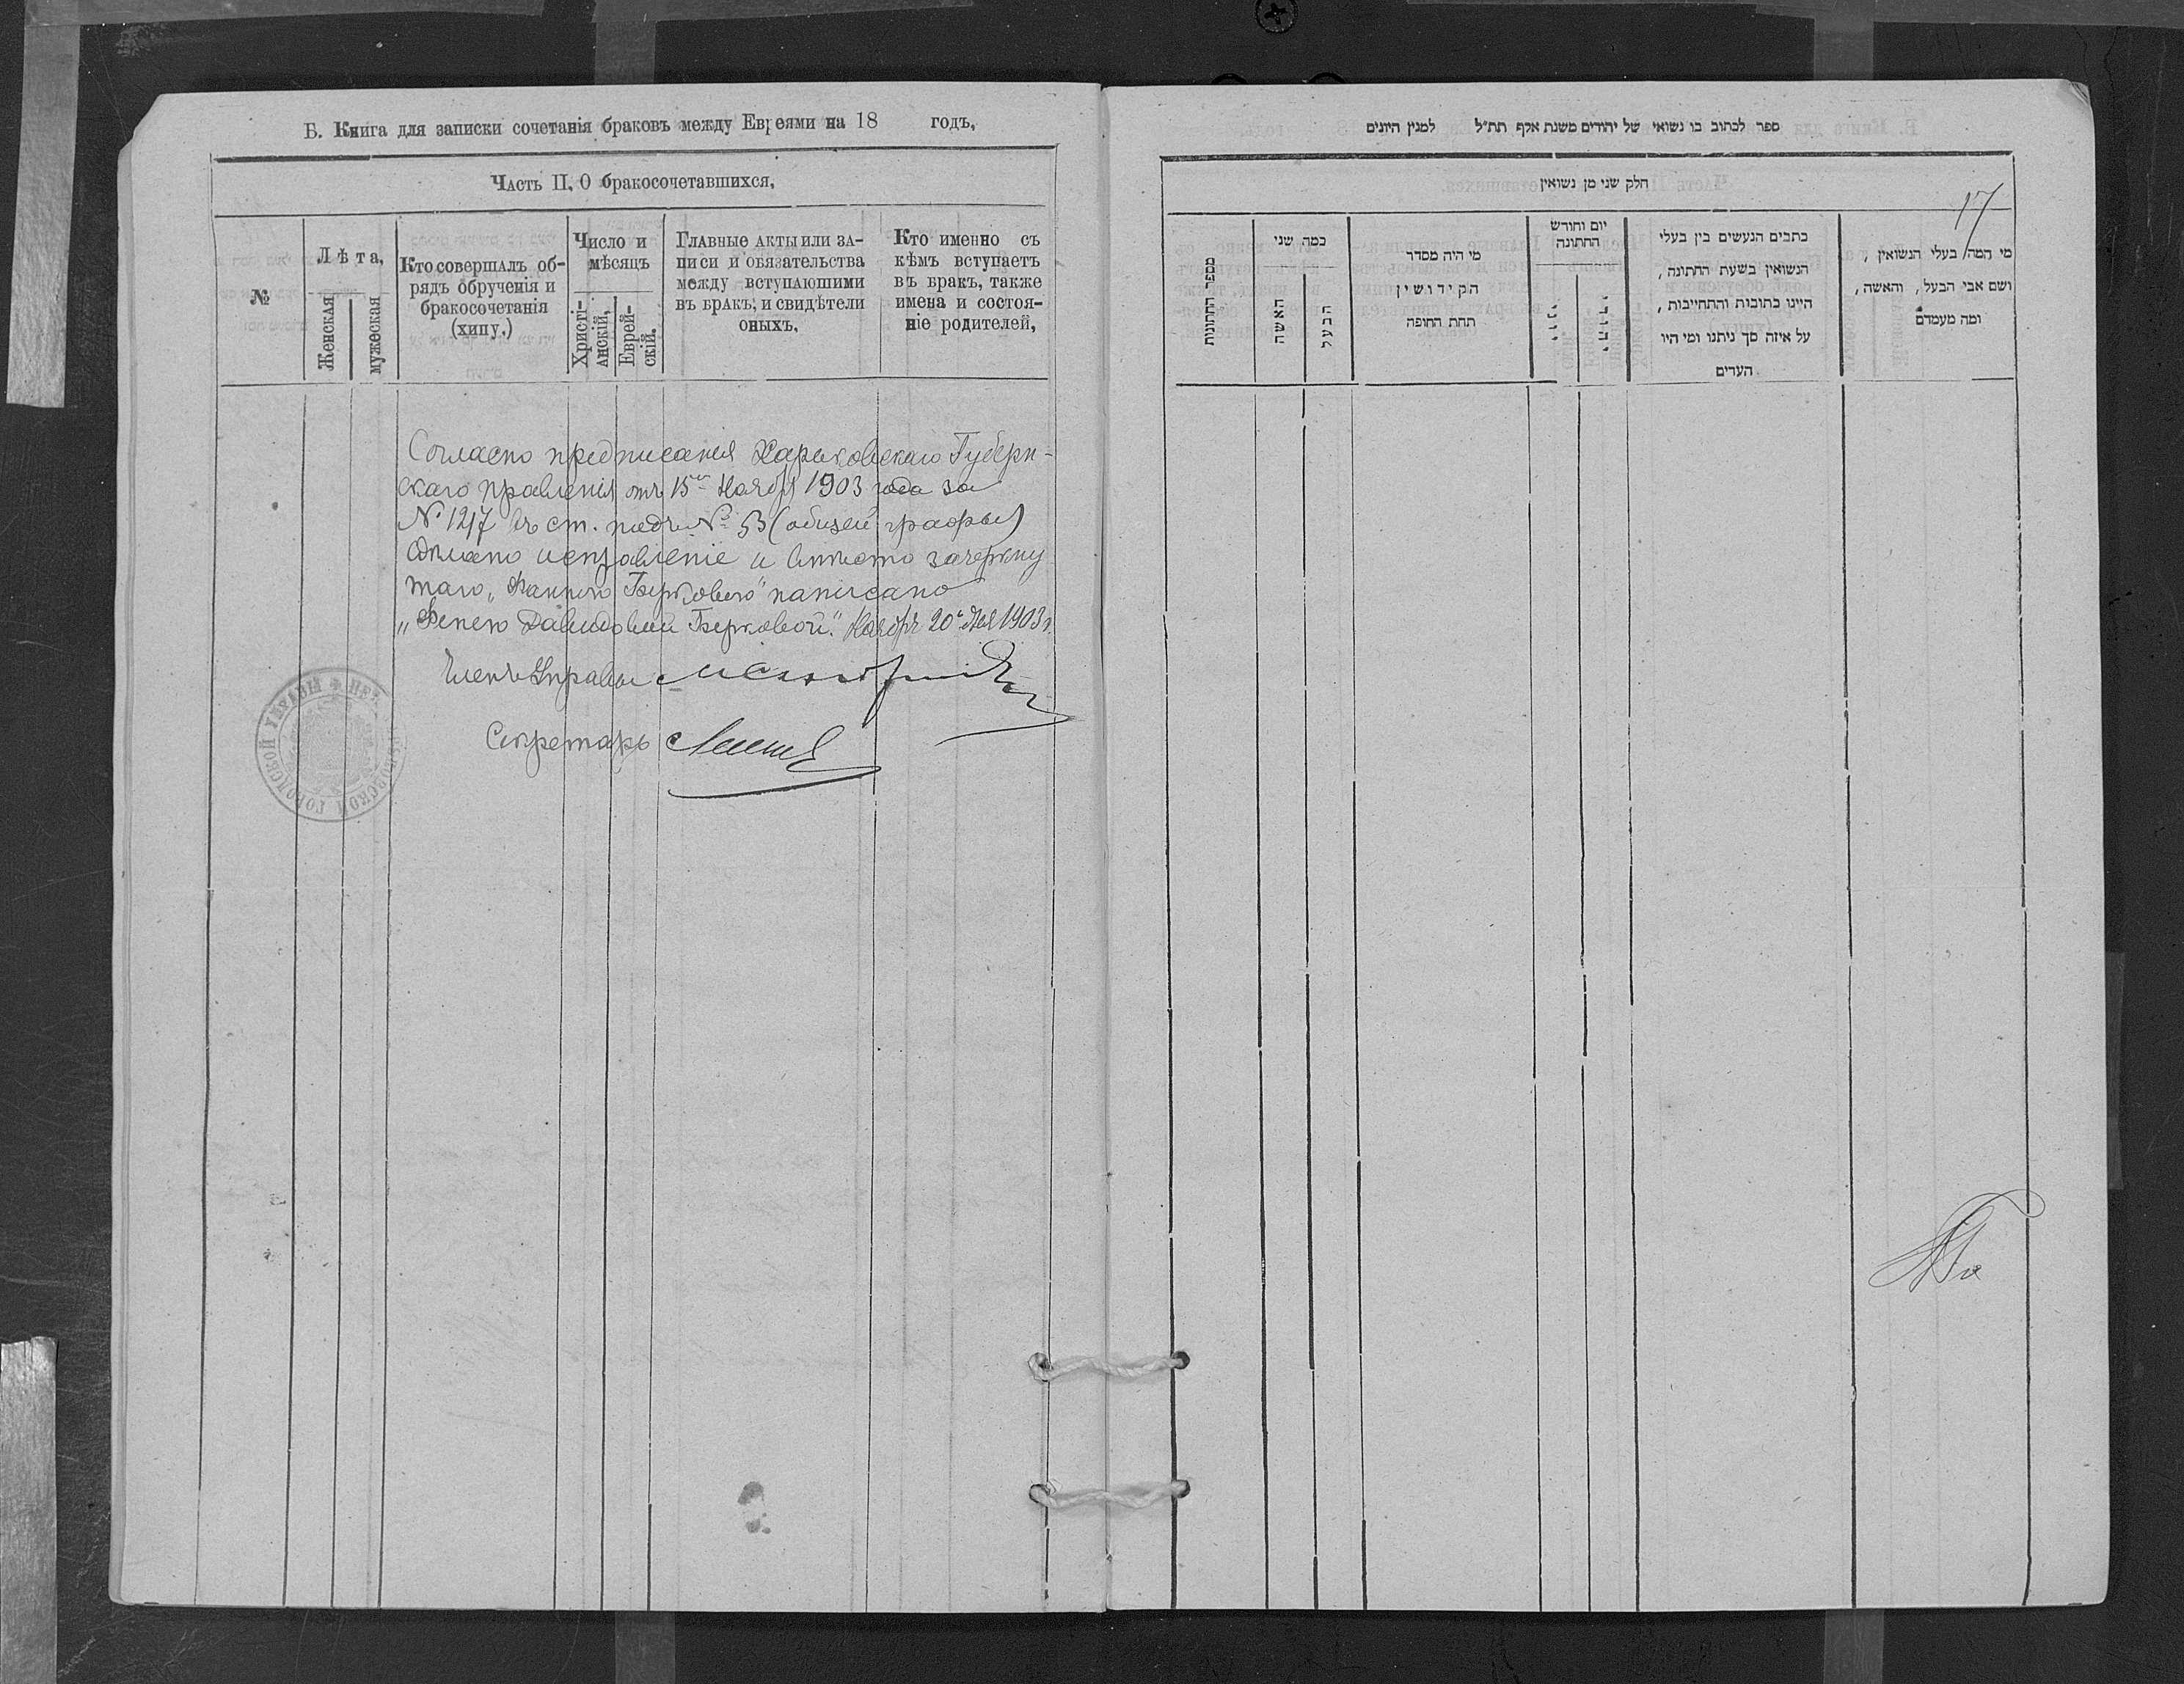 Б. Книга для записки сочетанія браковъ между Евреями на 18 годъ,
Часть II. О бракосочетавшихся,
№
Лѣта,
Женская
мужеская
Кто совершалъ об-
рядъ обрученія и
бракосочетанія
(хипу.)
Число и
мѣсяцъ
Христі-
анскій,
Еврей-
скій.
Главные акты или за-
писи и обязательства
между вступающими
въ бракъ, и свидѣтели
оныхъ.
Кто именно съ
кѣмъ вступаетъ
въ бракъ, также
имена и состоя-
ніе родителей,
Согласно предписанія Харьковскаго Губерн-
скаго правленія отъ 15го Ноября 1903 года за
№ 1217 въ ст. подъ № (общей графы)
сдѣлано исправленіе и вмѣсто зачеркну
таго „ Берковою" написано
„Фенею Давидовной Берковой." Ноября 20 дня 1903 г.
Членъ Управы
Секретарь
ГОРОДСКОЙ УПРАВЫ
ספר לכתוב בו נשואי של יהודים משנת אלף תת״ל למנין היונים
חלק שני מן נשואין
17
מספר החתונות
כמה שני
האשה
הבעל
מי היה מסדר
הקידושין
תחת החופה
יום וחודש
החתונה
יוני
יהודי
כתבים הנעשים בין בעלי
הנשואין בשעת החתונה,
היינו כתובות והתחייבות,
על איזה סך ניתנו ומי היו
העדים
מי המה בעלי הנשואין,
ושם אבי הבעל, והאשה,
ומה מעמדם